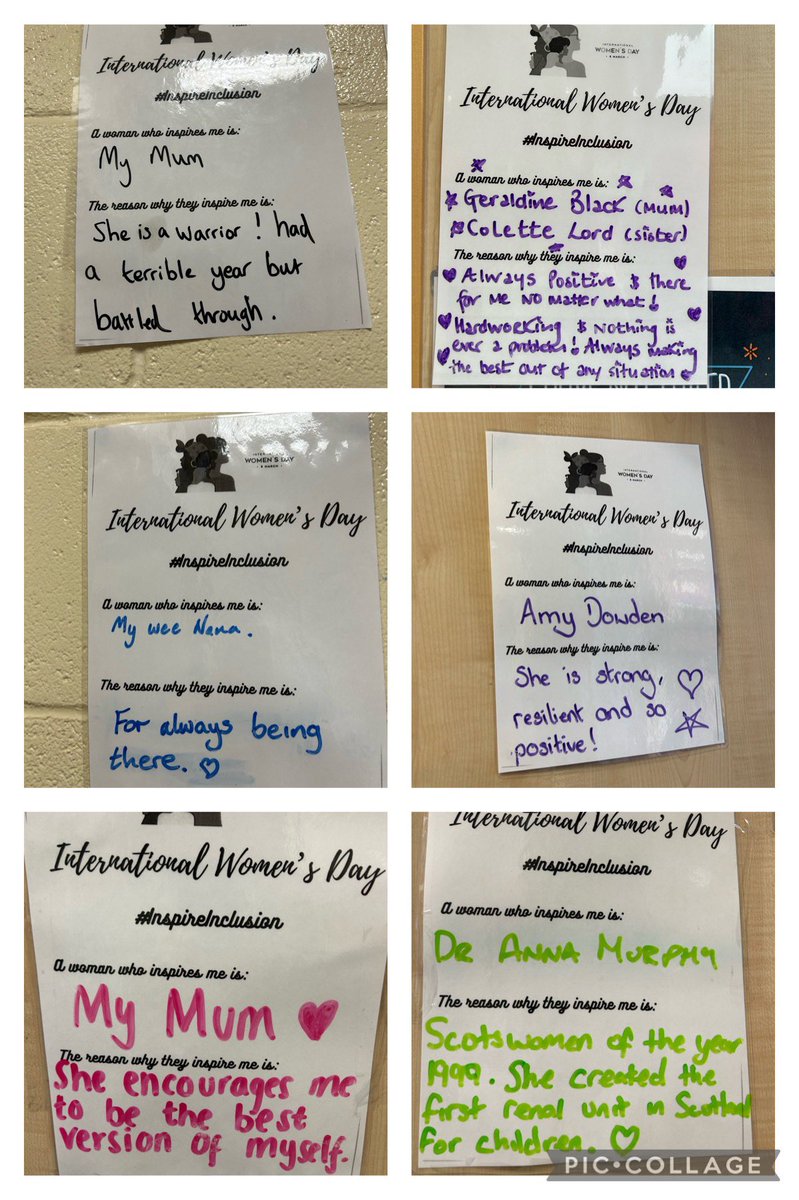 International Women's Day
#InspireInclusion
A woman who inspires me is:
My Mum
The reason why they inspire me is:
She is a warrior! had
a terrible year but
battled through.
INTERNATIONAL
WOMEN'S DAY
· 8 MARCH ·
International Women's Day
#InspireInclusion
A woman who inspires me is:
Geraldine Black (Mum)
Colette Lord (sister)
The reason why they inspire me is:
Always Positive & there
for me no matter what!
Hardworking & Nothing is
ever a problem! Always making
the best out of any situation
INTERNATIONAL
WOMEN'S DAY
· 8 MARCH ·
International Women's Day
#InspireInclusion
A woman who inspires me is:
My wee Nana.
The reason why they inspire me is:
For always being
there.
INTERNATIONAL
WOMEN'S DAY
· 8 MARCH ·
International Women's Day
#InspireInclusion
A woman who inspires me is:
Amy Dowden
The reason why they inspire me is:
She is strong,
resilient and so
positive!
International Women's Day
#InspireInclusion
A woman who inspires me is:
My Mum
The reason why they inspire me is:
She encourages me
to be the best
version of myself.
International Women's Day
#InspireInclusion
A woman who inspires me is:
Dr Anna Murphy
The reason why they inspire me is:
Scotswomen of the year
1999. She created the
first renal unit in Scotland
for children.
PIC•COLLAGE